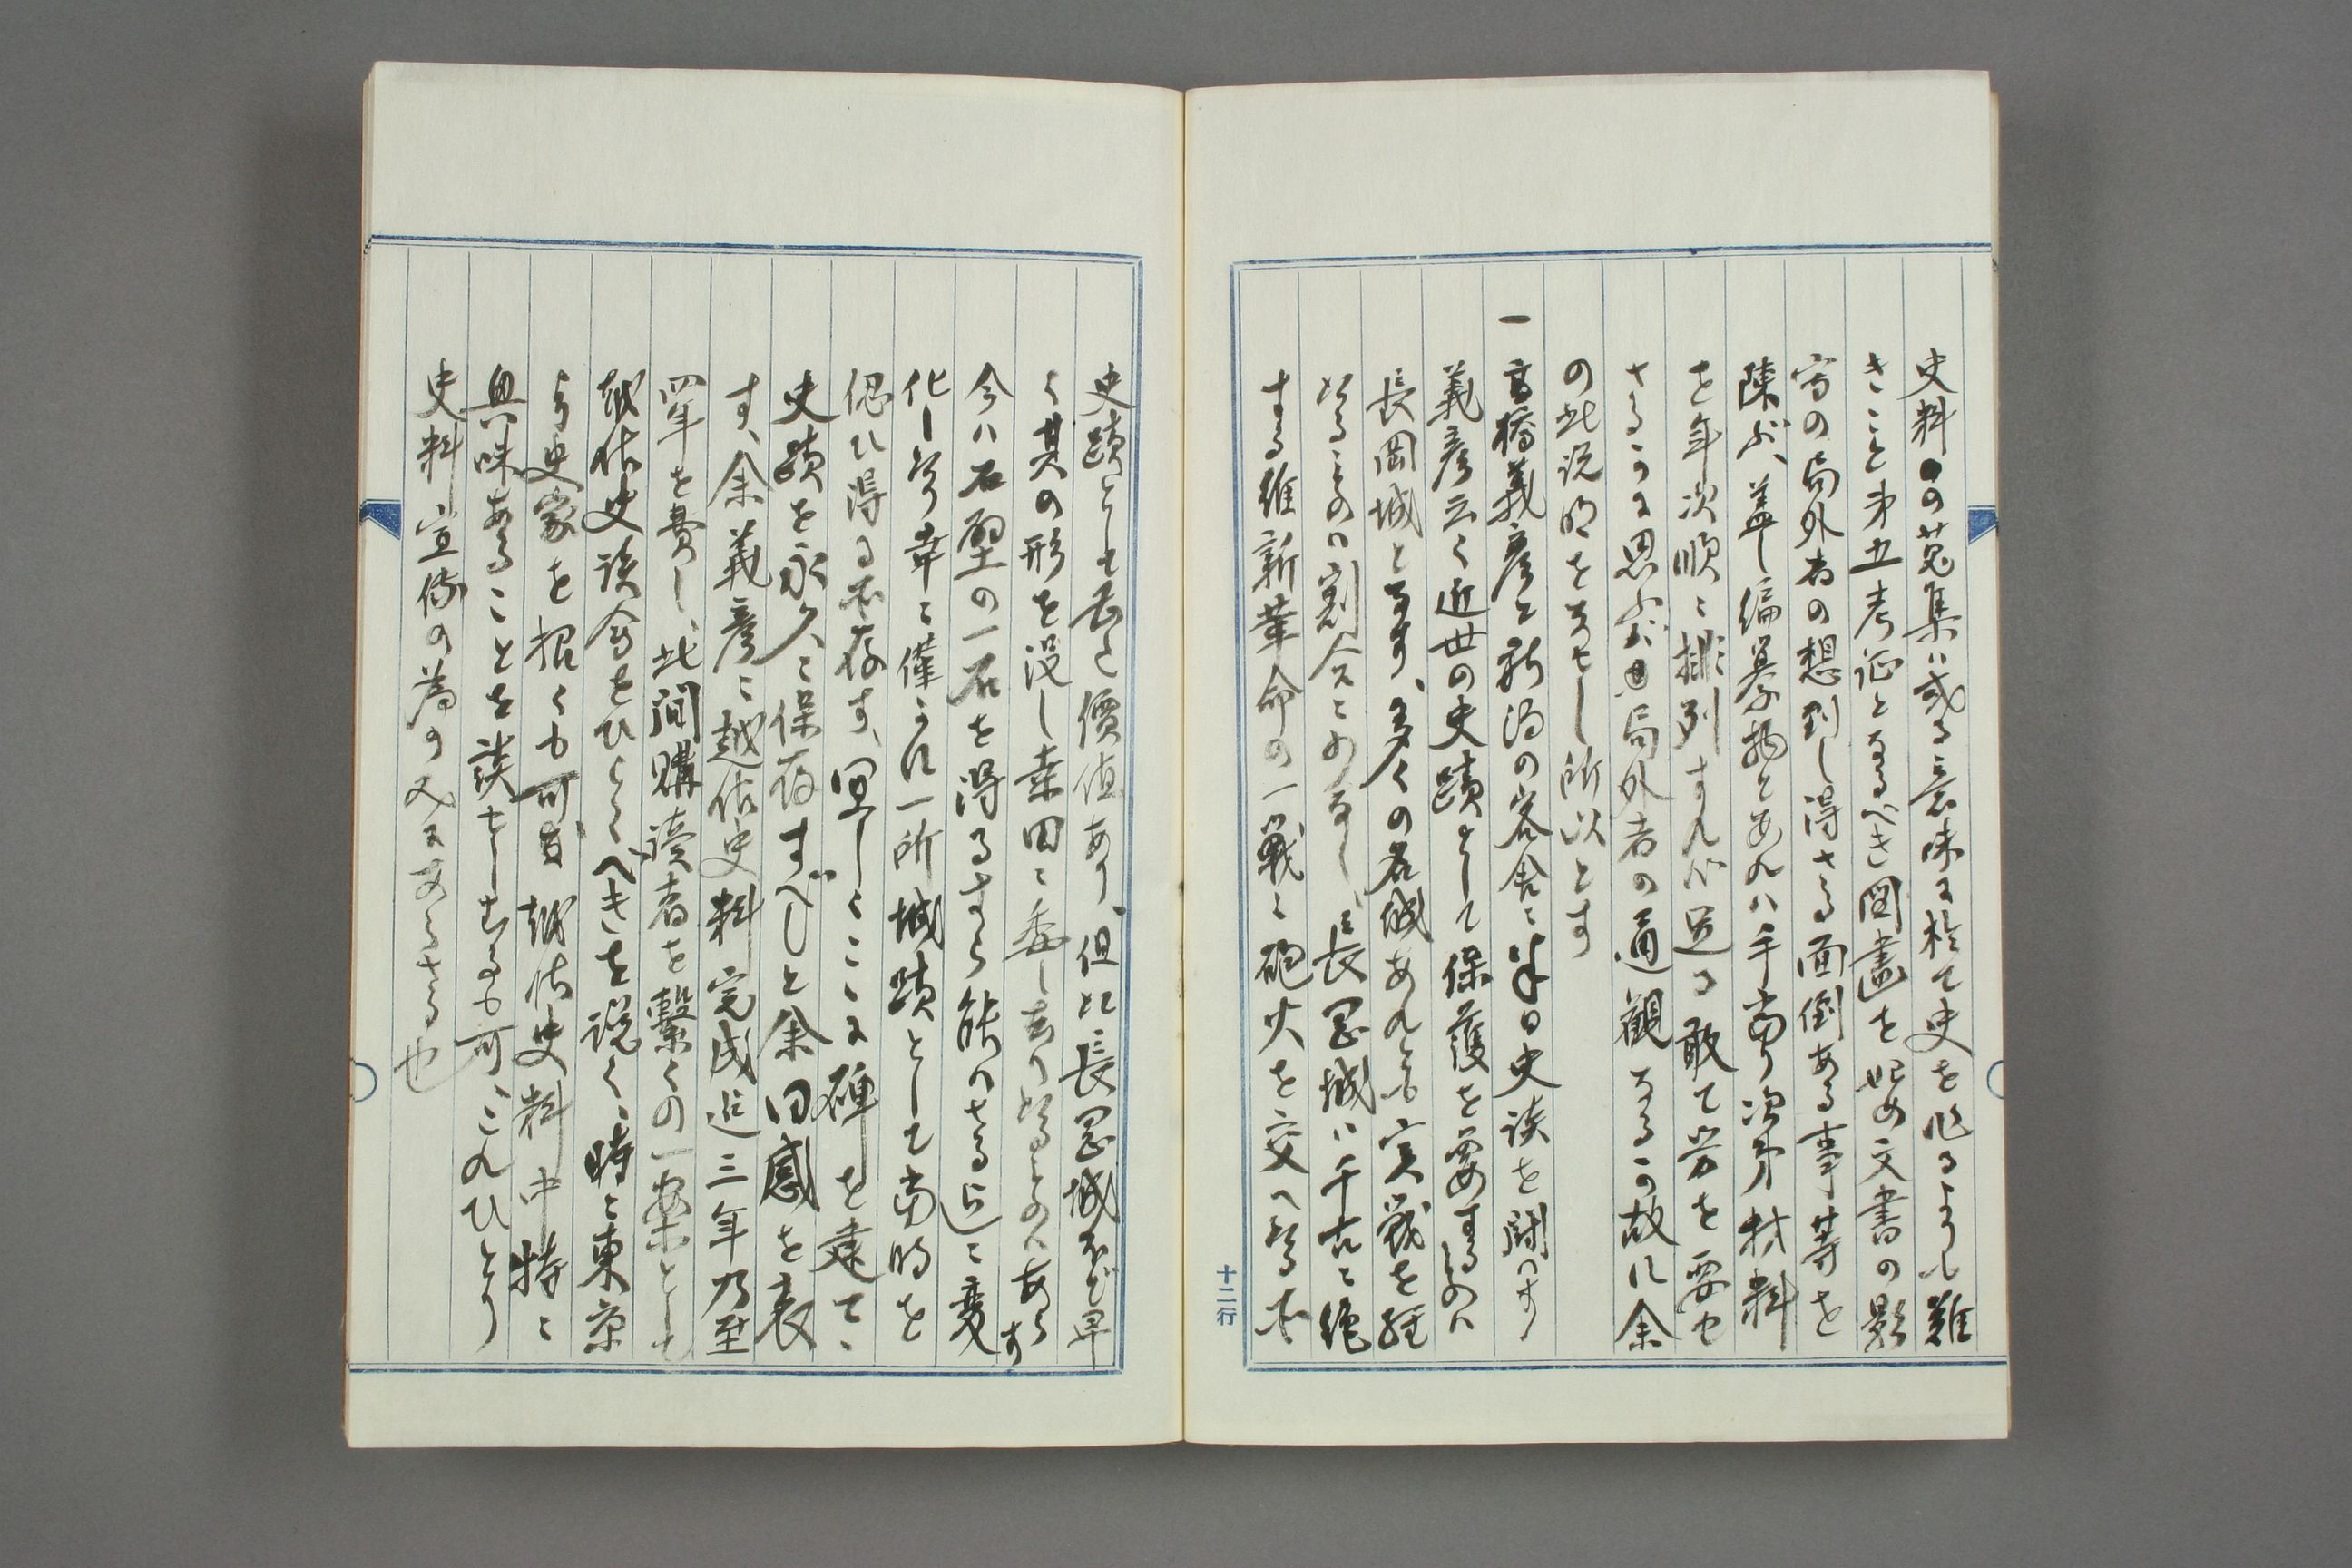 史料の蒐集ハ或る意味に於て史を作るよりも難
きこと、考証となるべき図画を始め文書の影
写の局外者の想到し得さる面倒ある事等を
陳ぶ、蓋し編纂物とあれハ手当り次第材料
を年次順に排列すれバ足る敢て労を要せ
さるかに思ふが局外者の通観なるか故に余
の此説明をなせし所以とす
一 高橋義彦と新潟の客舎に半日史談を闘ハす
義彦云く近世の史蹟として保護を要するものハ
長岡城となす、多くの名城あれども実戦を経
たるものハ割合に少なし、長岡城ハ千古に絶
する維新革命の一戦に砲火を交へたる
史蹟としても尤も価値あり、但に長岡城ほど早
く其の形を没し桑田に委し去りたるものハあらす
今ハ石塁の一石を得るすら能ハさるに変
化し了り幸に僅かに一所城蹟として当時を
偲ひ得る不存す、宜しくここに碑を建て、
史蹟を永久に保存すべしと余同感を表
す、余義彦に越佐史料完成迄三年乃至
四年を費し、此間購読者を繋くの一案としも
越佐史談会をひらくべきを説く、時に東京
より史家を招くも可、越佐史料中特に
興味あることを談せしむるも可、これひとり
史料宣伝の為のみにあらさる也
十二行